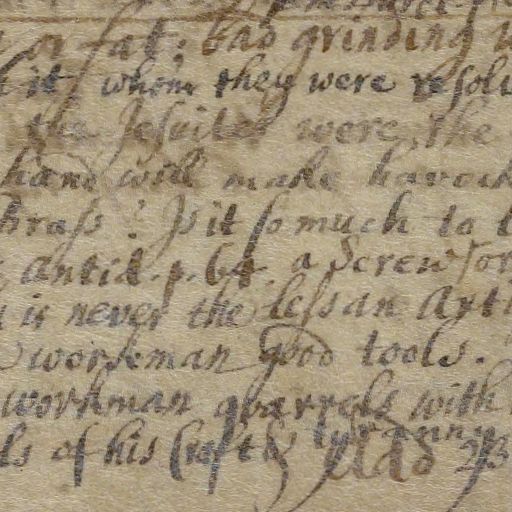 or fat; bad grinding
it whom they were resolv
the Jesuites were the
hand will make havock
Brass? Is it so much to
Antid. p. 64. a Screw or
is never the less an Arti
workman good tools.
workman quarrels with
ls of his Craft
tyranny